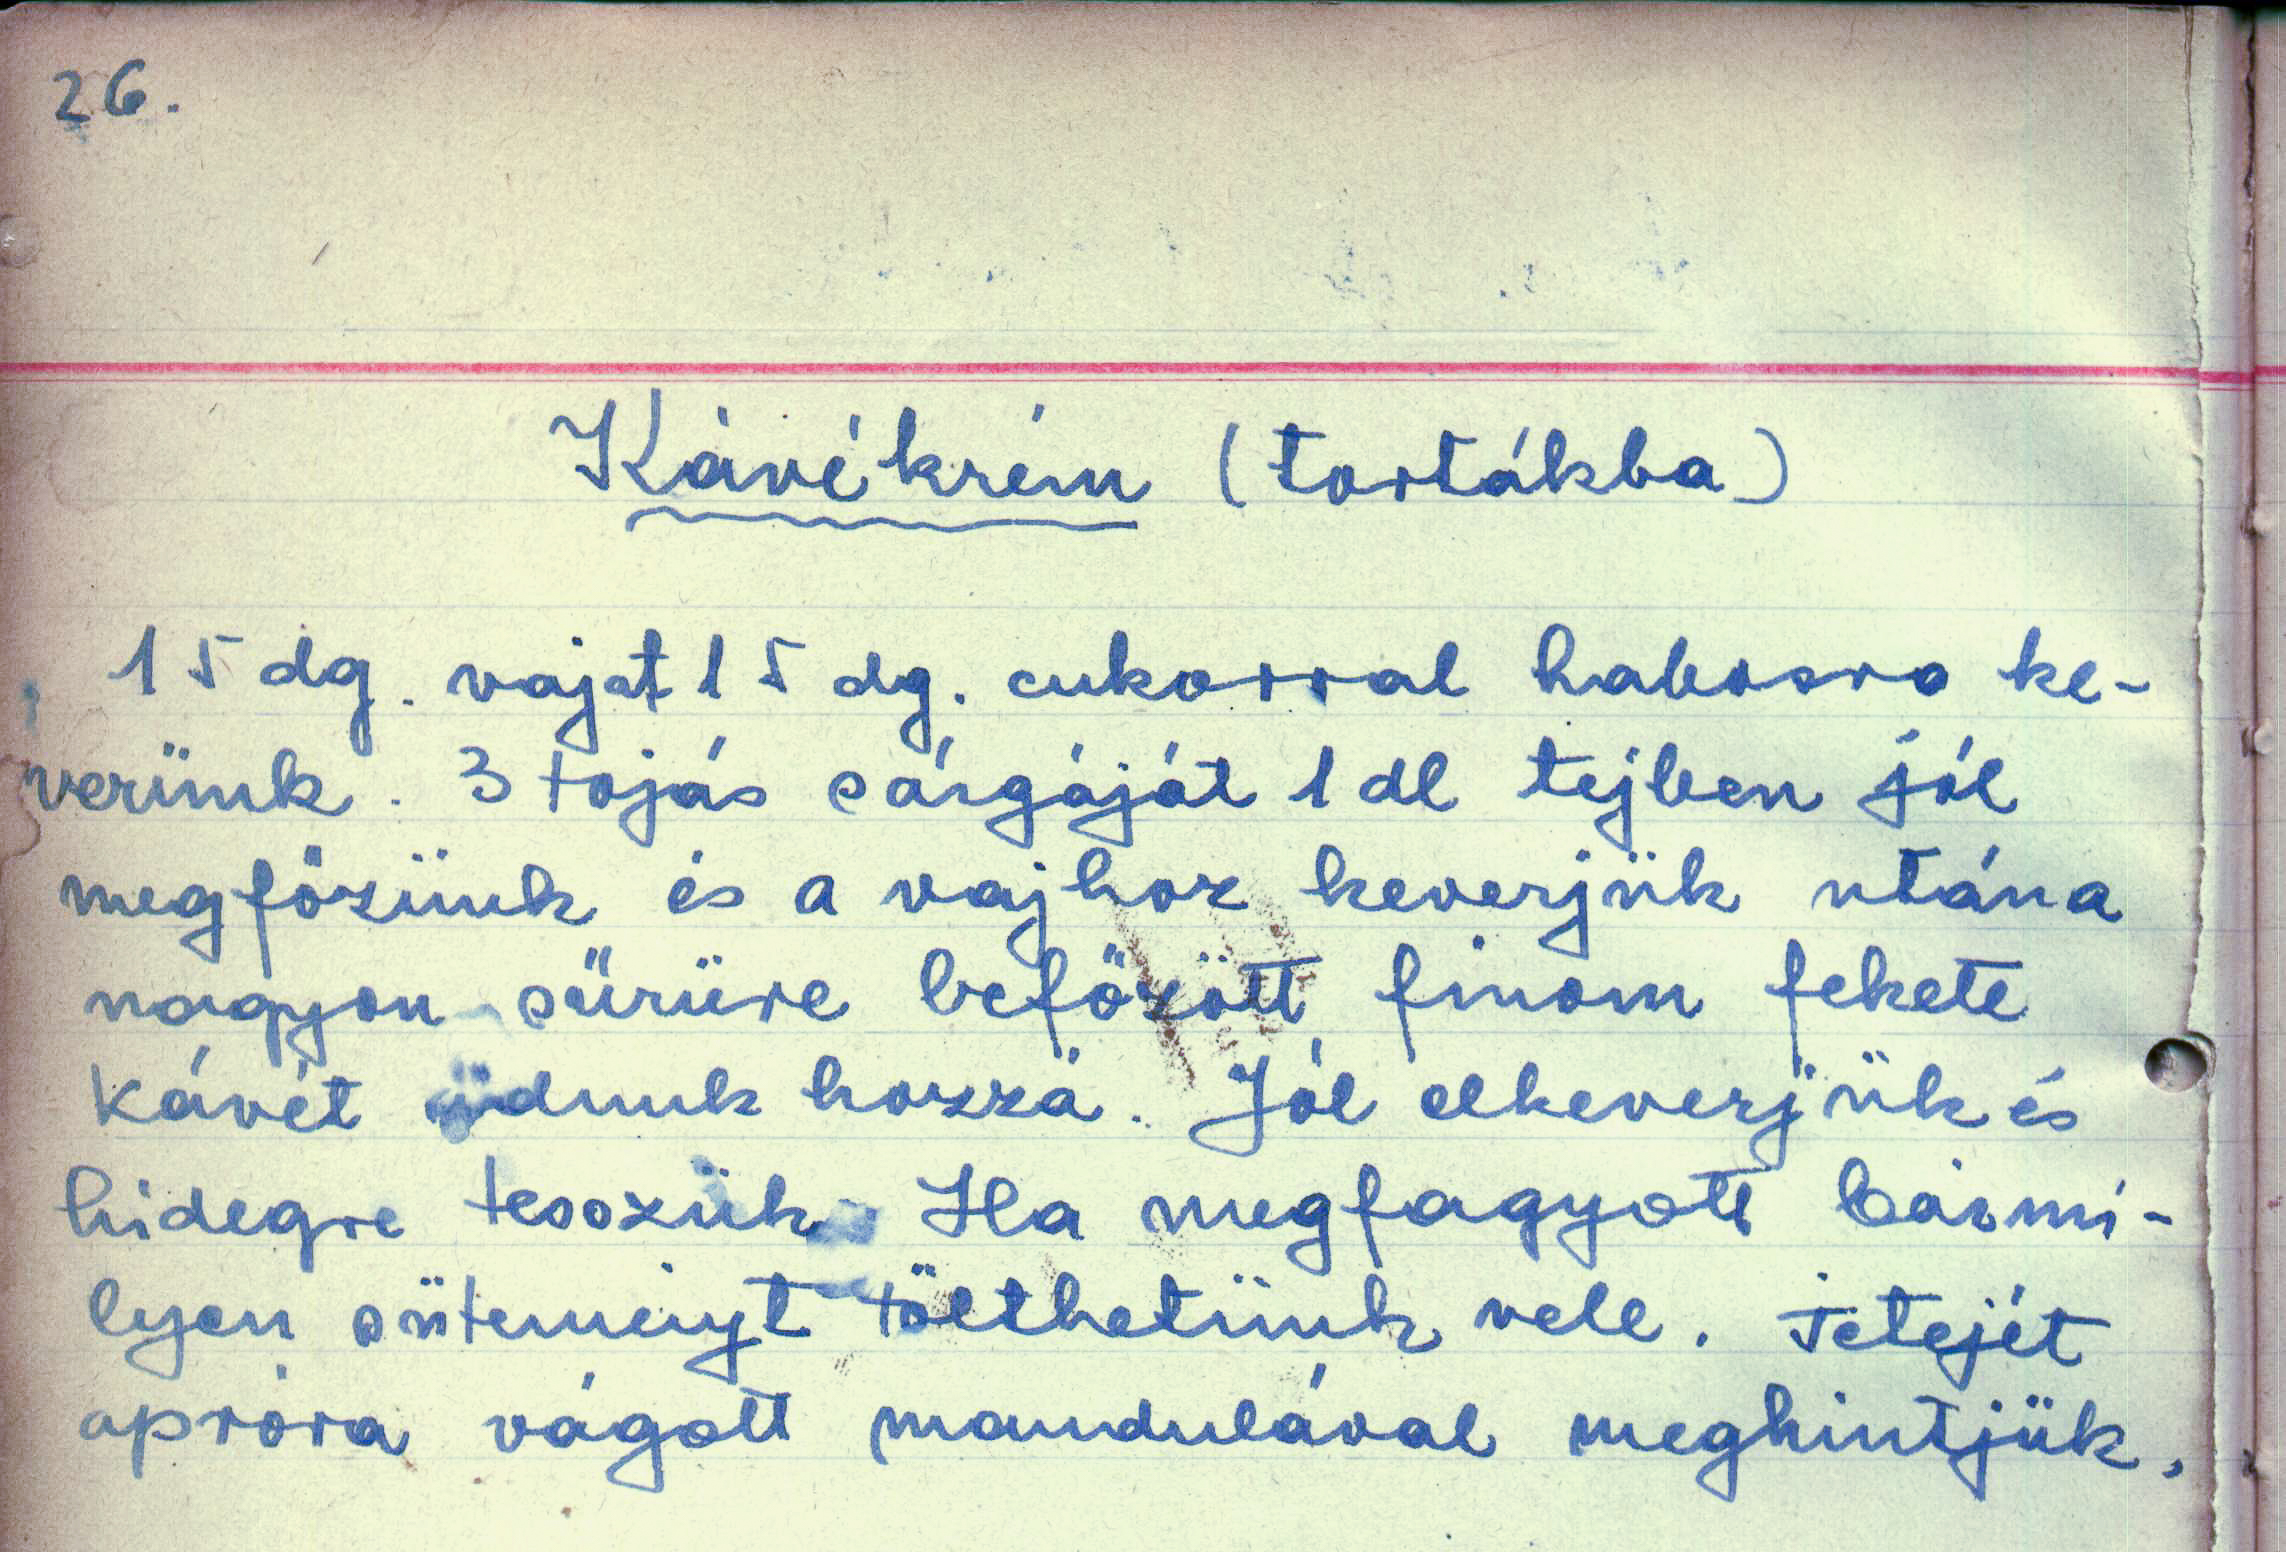 26.
Kávékrém (tortákba)
15 dg. vajat 15 dg. cukorral habosra ke-
verünk. 3 tojás sárgáját 1 dl tejben jól
megfőzünk és a vajhoz keverjük utána
nagyon sűrüre befőzött finom fekete
kávét adunk hozzá. Jól elkeverjük és
hidegre tesszük. Ha megfagyott bármi-
lyen süteményt tölthetünk vele. Tetejét
apróra vágott mandulával meghintjük.